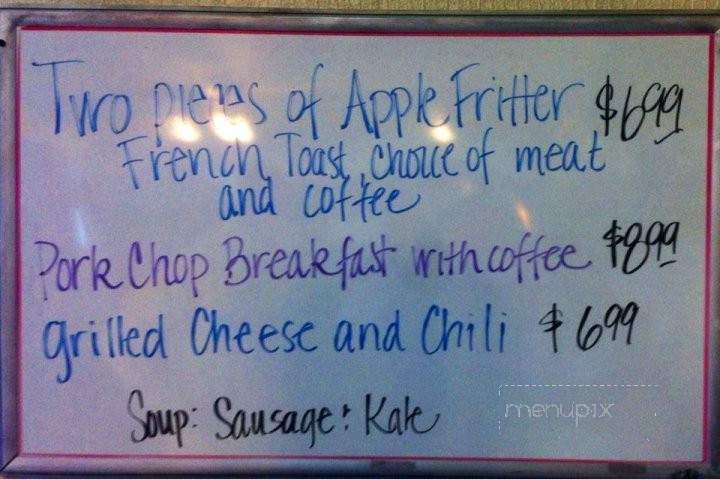 Two pieces of Apple Fritter $6.99
French Toast, choice of meat
and coffee
Pork Chop Breakfast with coffee $8.99
grilled Cheese and Chili $6.99
Soup: Sausage & Kale
menupix